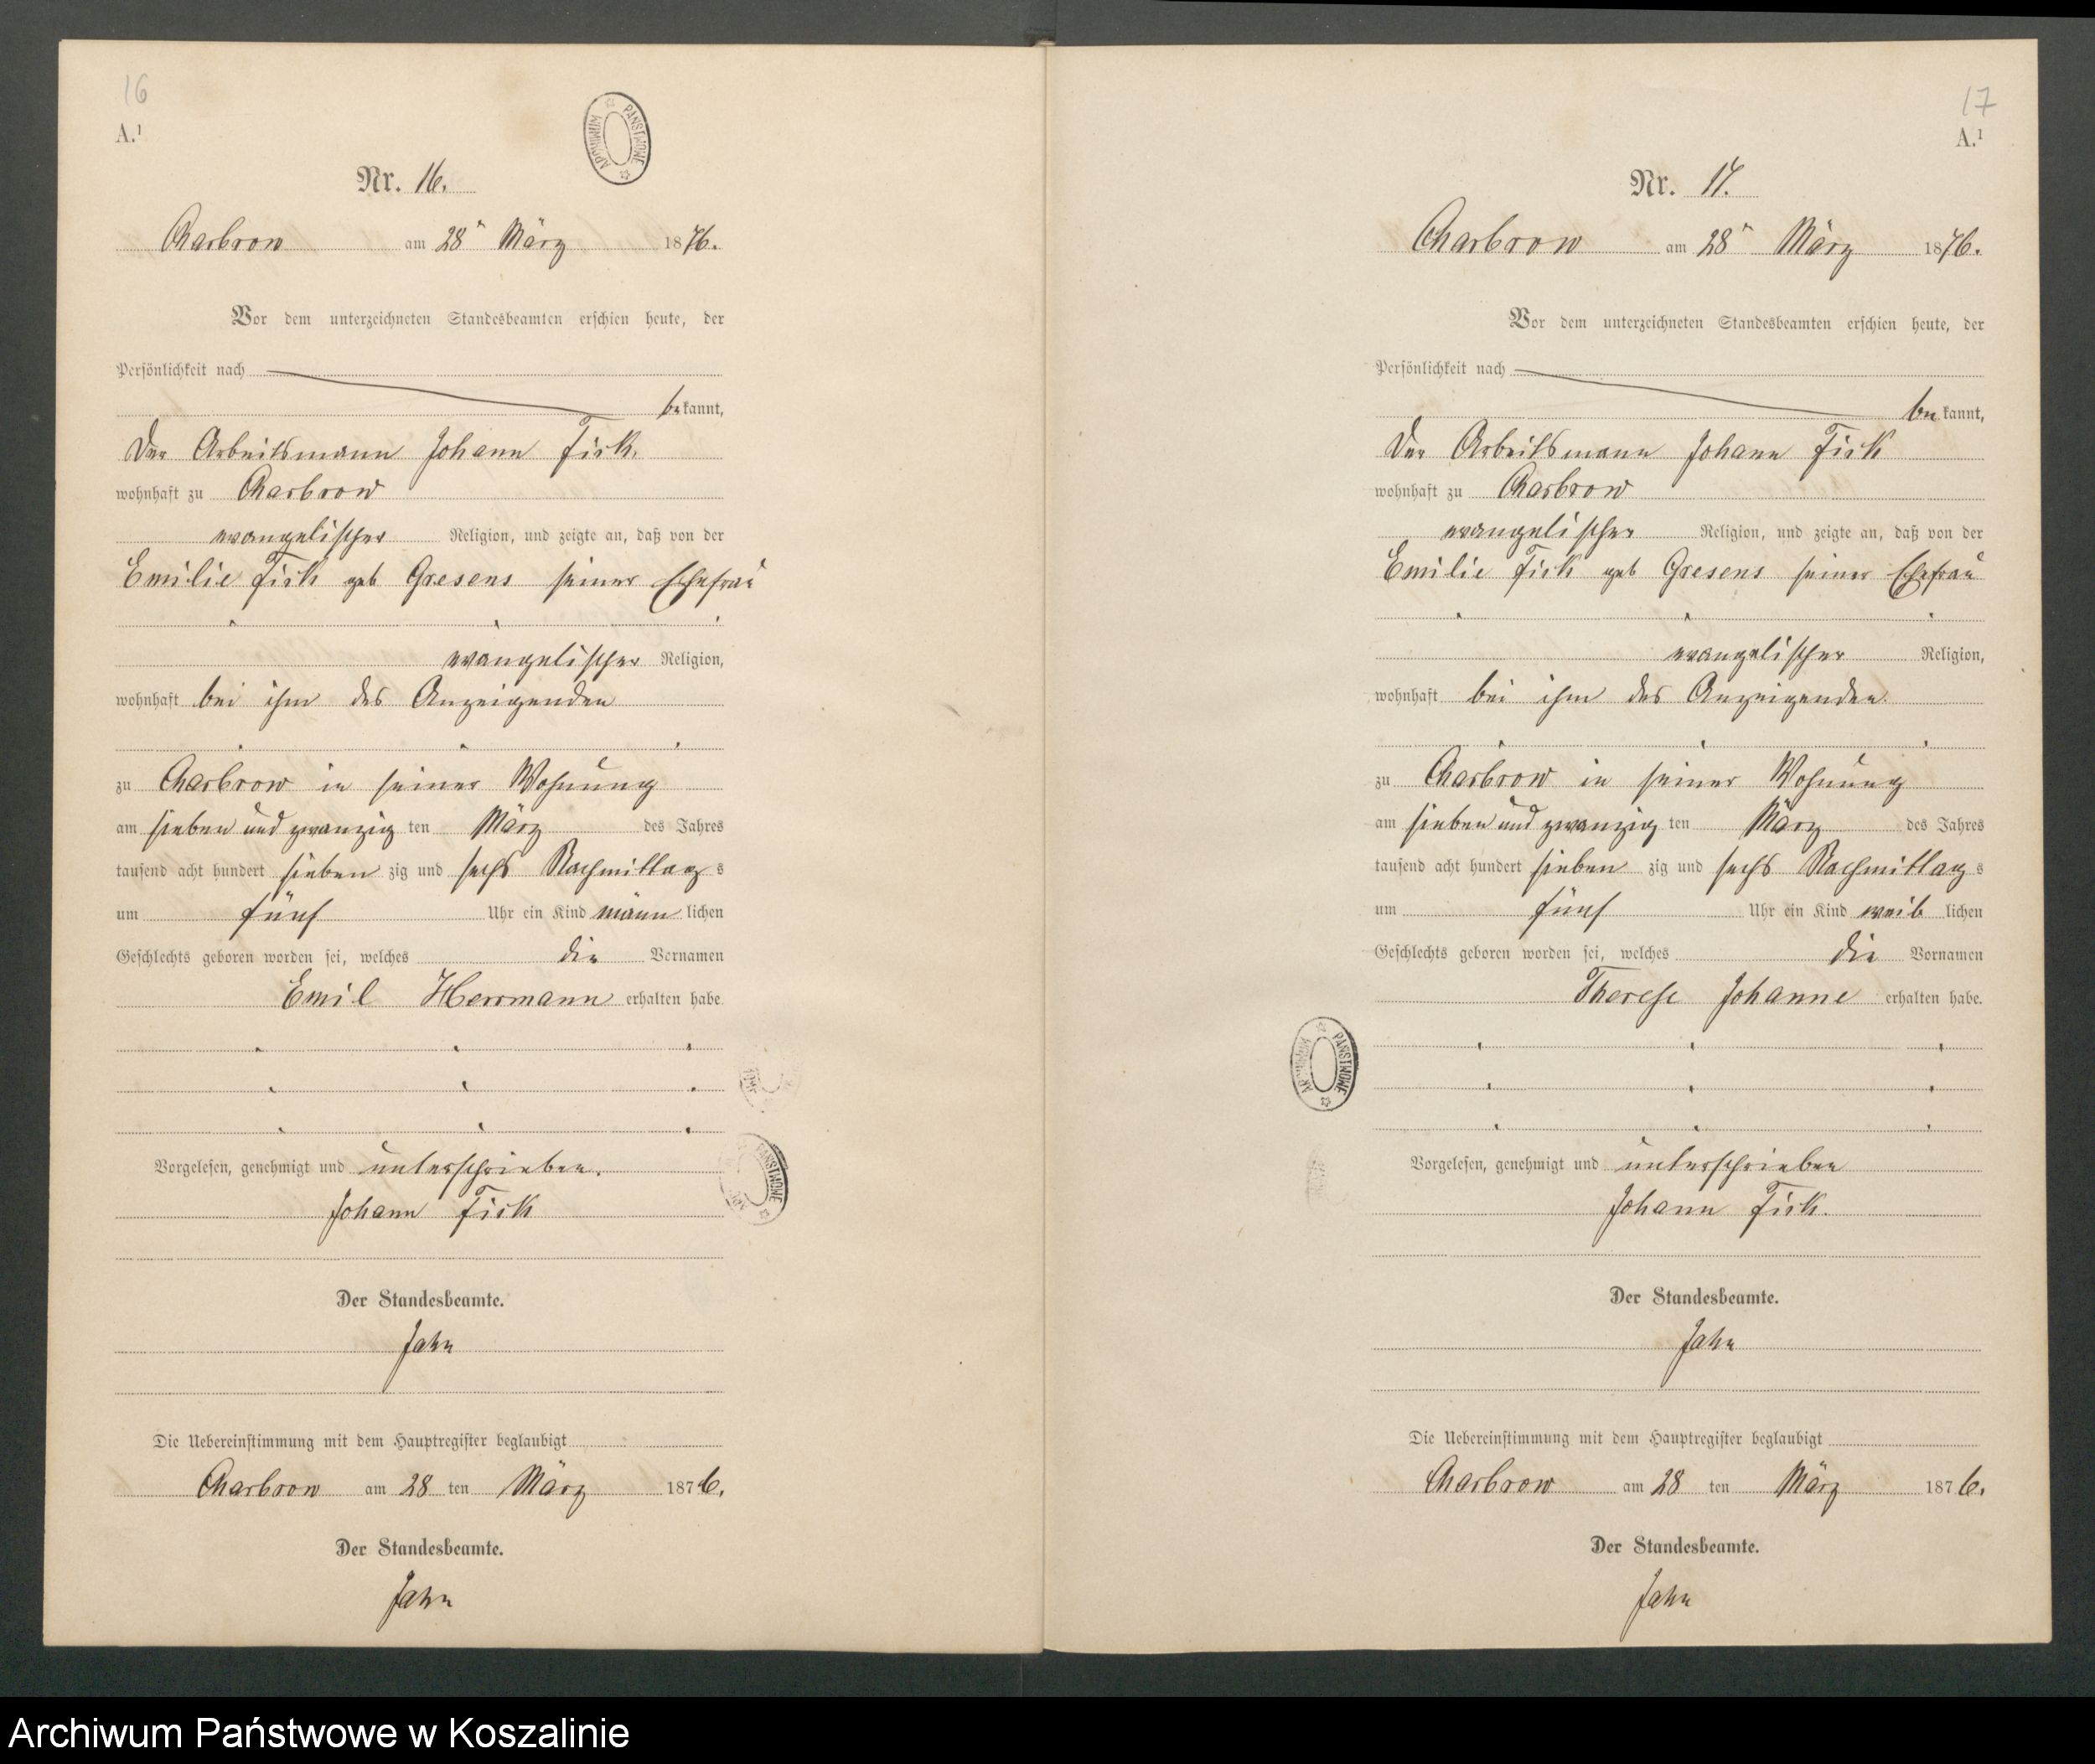 16
A.¹
Nr. 16.
Charbrow am 28ⁿ März 1876.
Vor dem unterzeichneten Standesbeamten erschien heute, der
Persönlichkeit nach
bekannt,
Der Arbeitsmann Johann Fick.
wohnhaft zu Charbrow
evangelischer Religion, und zeigte an, daß von der
Emilie Fick geb Gresens seiner Ehefrau
evangelischer Religion,
wohnhaft bei ihm des Anzeigenden
zu Charbrow in seiner Wohnung
am sieben und zwanzig ten März des Jahres
tausend acht hundert sieben zig und sechs Nachmittag s
um fünf Uhr ein Kind männ lichen
Geschlechts geboren worden sei, welches die Vornamen
Emil Herrmann erhalten habe.
Vorgelesen, genehmigt und unterschrieben.
Johann Fick
Der Standesbeamte.
Jahn
Die Uebereinstimmung mit dem Hauptregister beglaubigt
Charbrow am 28 ten März 1876.
Der Standesbeamte.
Jahn
17
A.¹
Nr. 17.
Charbrow am 28ⁿ März 1876.
Vor dem unterzeichneten Standesbeamten erschien heute, der
Persönlichkeit nach
bekannt,
Der Arbeitsmann Johann Fick
wohnhaft zu Charbrow
evangelischer Religion, und zeigte an, daß von der
Emilie Fick geb Gresens seiner Ehefrau
evangelischer Religion,
wohnhaft bei ihm des Anzeigenden.
zu Charbrow in seiner Wohnung
am sieben und zwanzig ten März des Jahres
tausend acht hundert sieben zig und sechs Nachmittag s
um fünf Uhr ein Kind weib lichen
Geschlechts geboren worden sei, welches die Vornamen
Therese Johanne erhalten habe.
PAŃSTWOWE
Vorgelesen, genehmigt und unterschrieben
Johann Fick.
Der Standesbeamte.
Jahn
Die Uebereinstimmung mit dem Hauptregister beglaubigt
Charbrow am 28 ten März 1876.
Der Standesbeamte.
Jahn
Archiwum Państwowe w Koszalinie